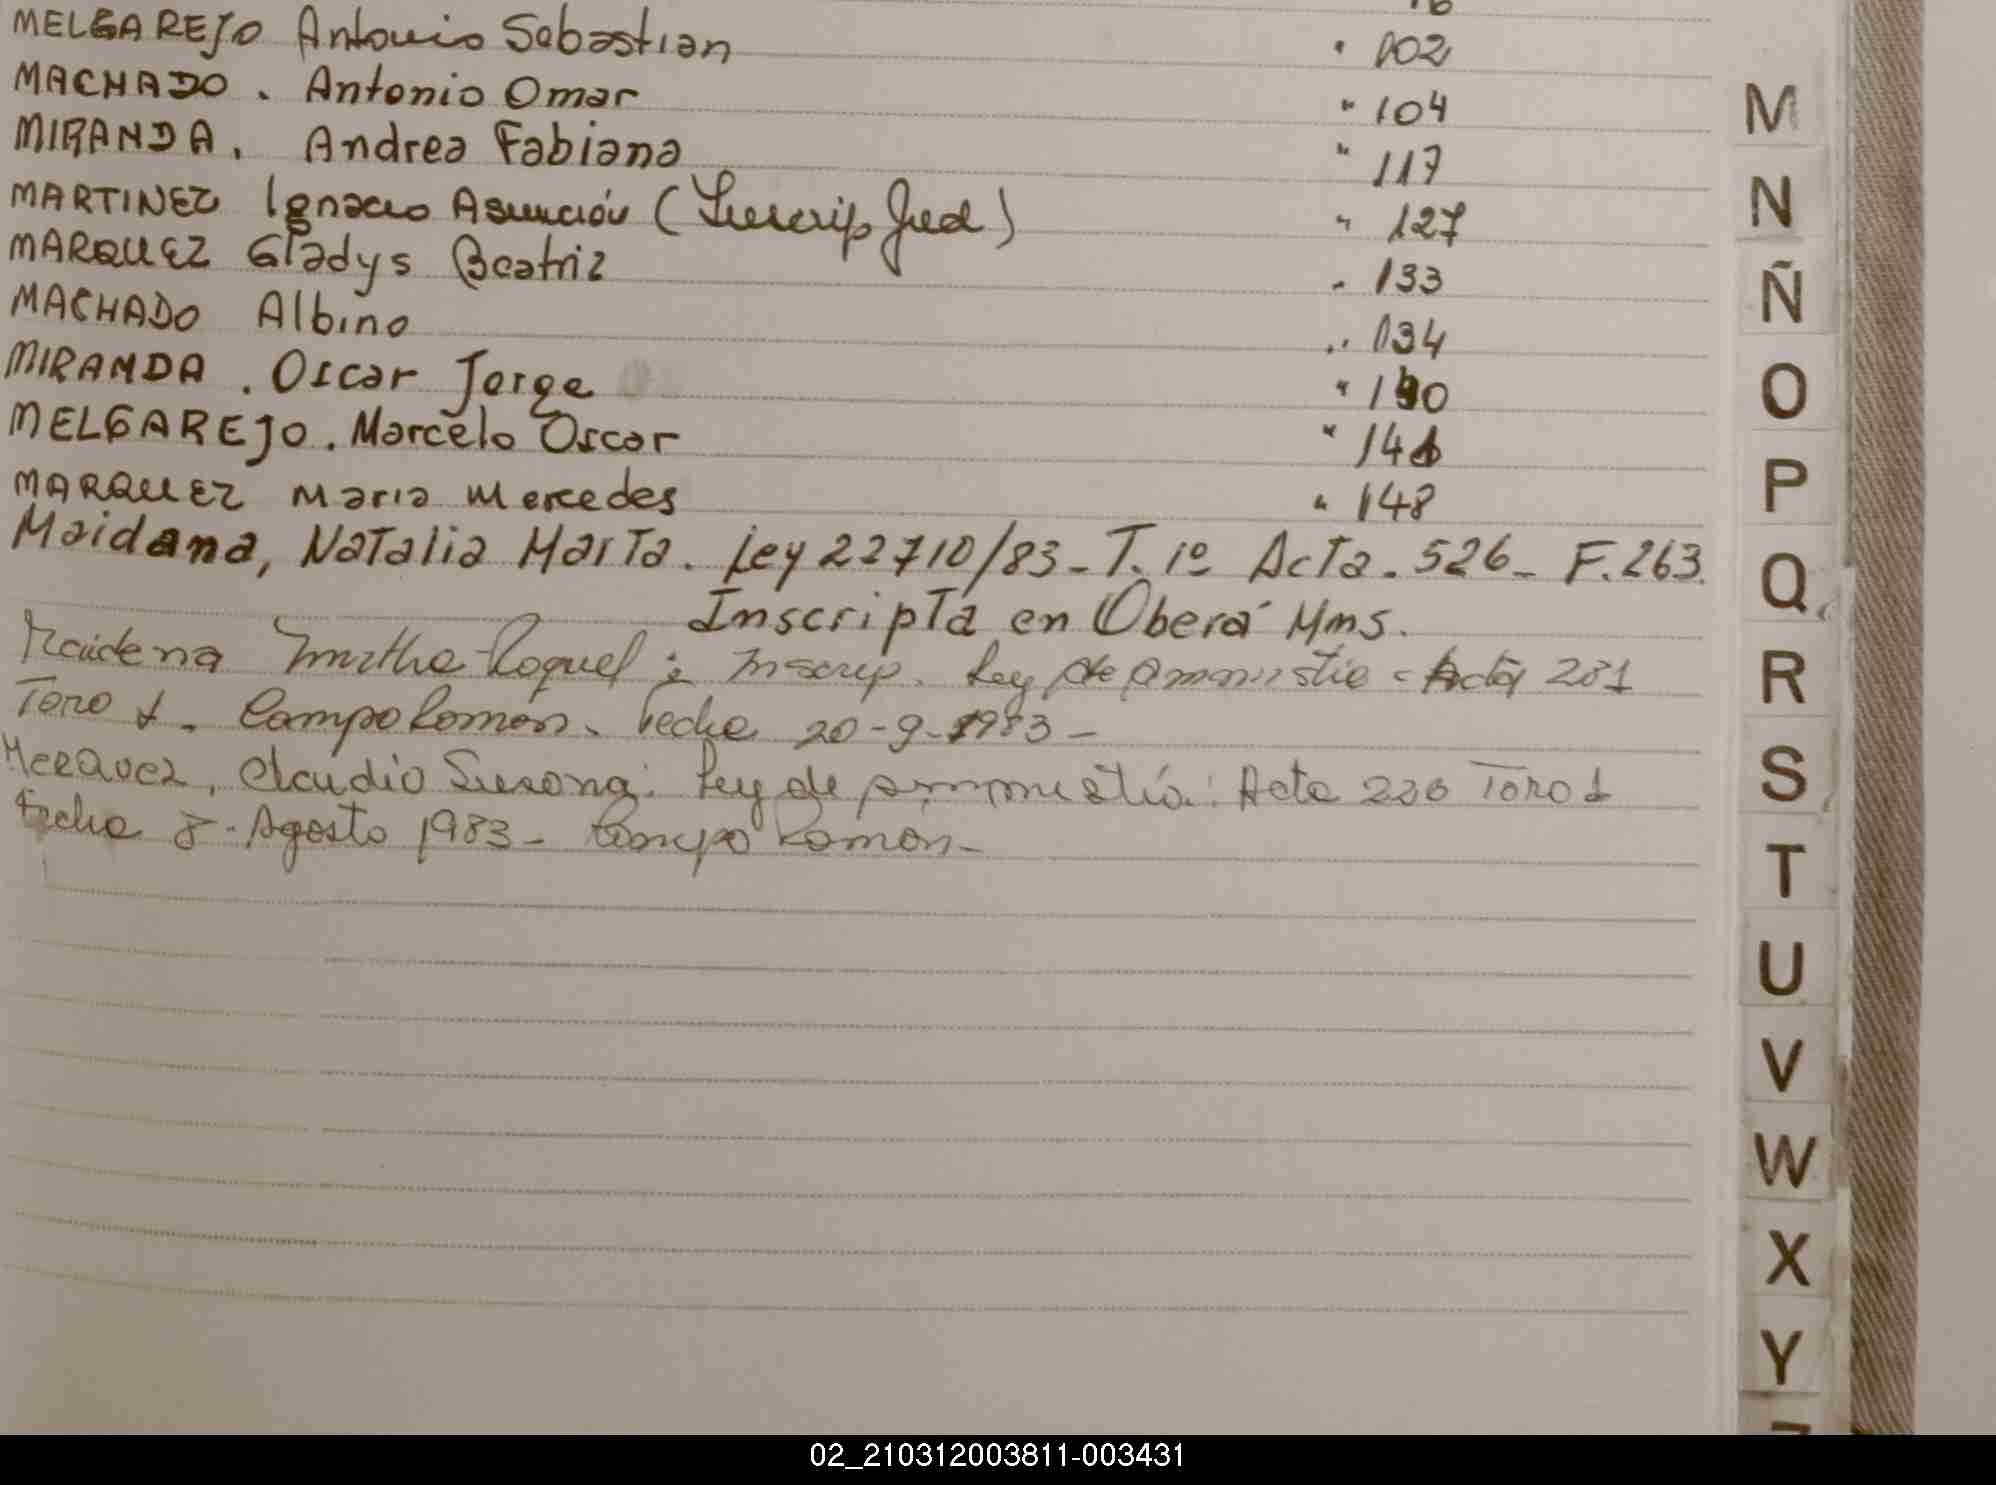 MELGAREJO Antonio Sebastian " 102
MACHADO. Antonio Omar " 104
MIRANDA. Andrea Fabiana " 117
MARTINEZ Ignacio Asunción (Inscrip Jud) " 127
MARQUEZ Gladys Beatriz " 133
MACHADO Albino " 134
MIRANDA. Oscar Jorge " 140
MELGAREJO. Marcelo Oscar " 141
MARQUEZ Maria Mercedes " 148
Maidana, Natalia Marta. Ley 22710/83 - T. 1º Acta. 526 - F. 263.
Inscripta en Oberá Mns.
Maidana Raquel: Inscrip. Ley de Amnistia - Acta 281
Tomo 1. Campo Ramon. Fecha 20-9-1983 -
Marquez, Claudio Susana: Ley de amnistía: Acta 236 Tomo 1
Fecha 8 - Agosto 1983 - Campo Ramon -
M
N
Ñ
O
P
Q
R
S
T
U
V
W
X
Y
02_210312003811-003431